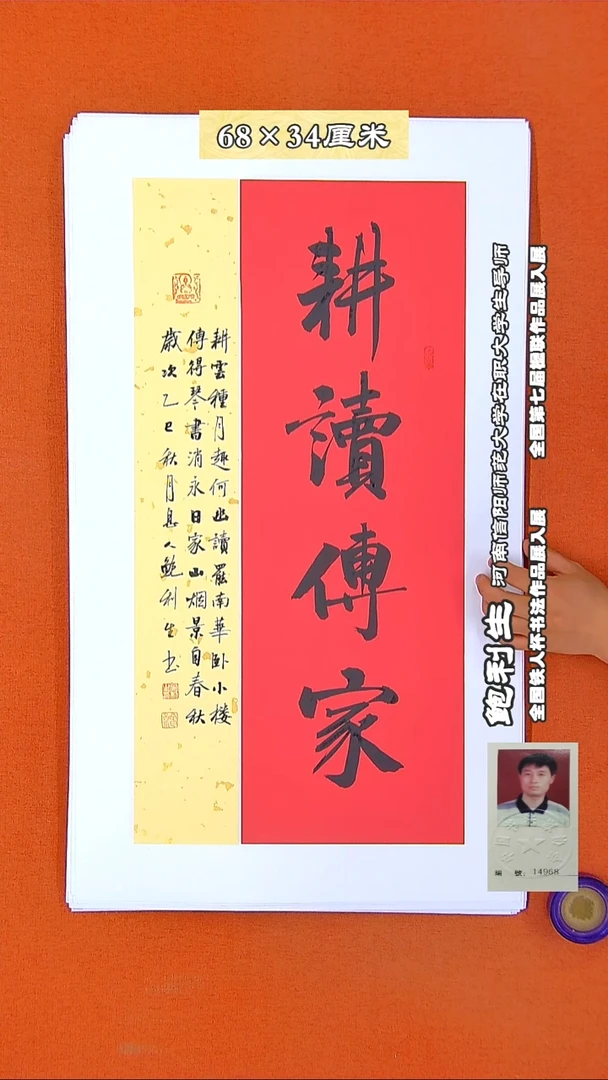 68×34厘米
耕讀傳家
耕雲種月趣何幽讀罷南華卧小楼
傳得琴書消永日家山烟景自春秋
歲次乙巳秋月息人鲍利生书
鲍利生 河南信阳师范大学在职大学生导师
全国铁人杯书法作品展入展 全国第七届楹联作品展入展
編 號：14968